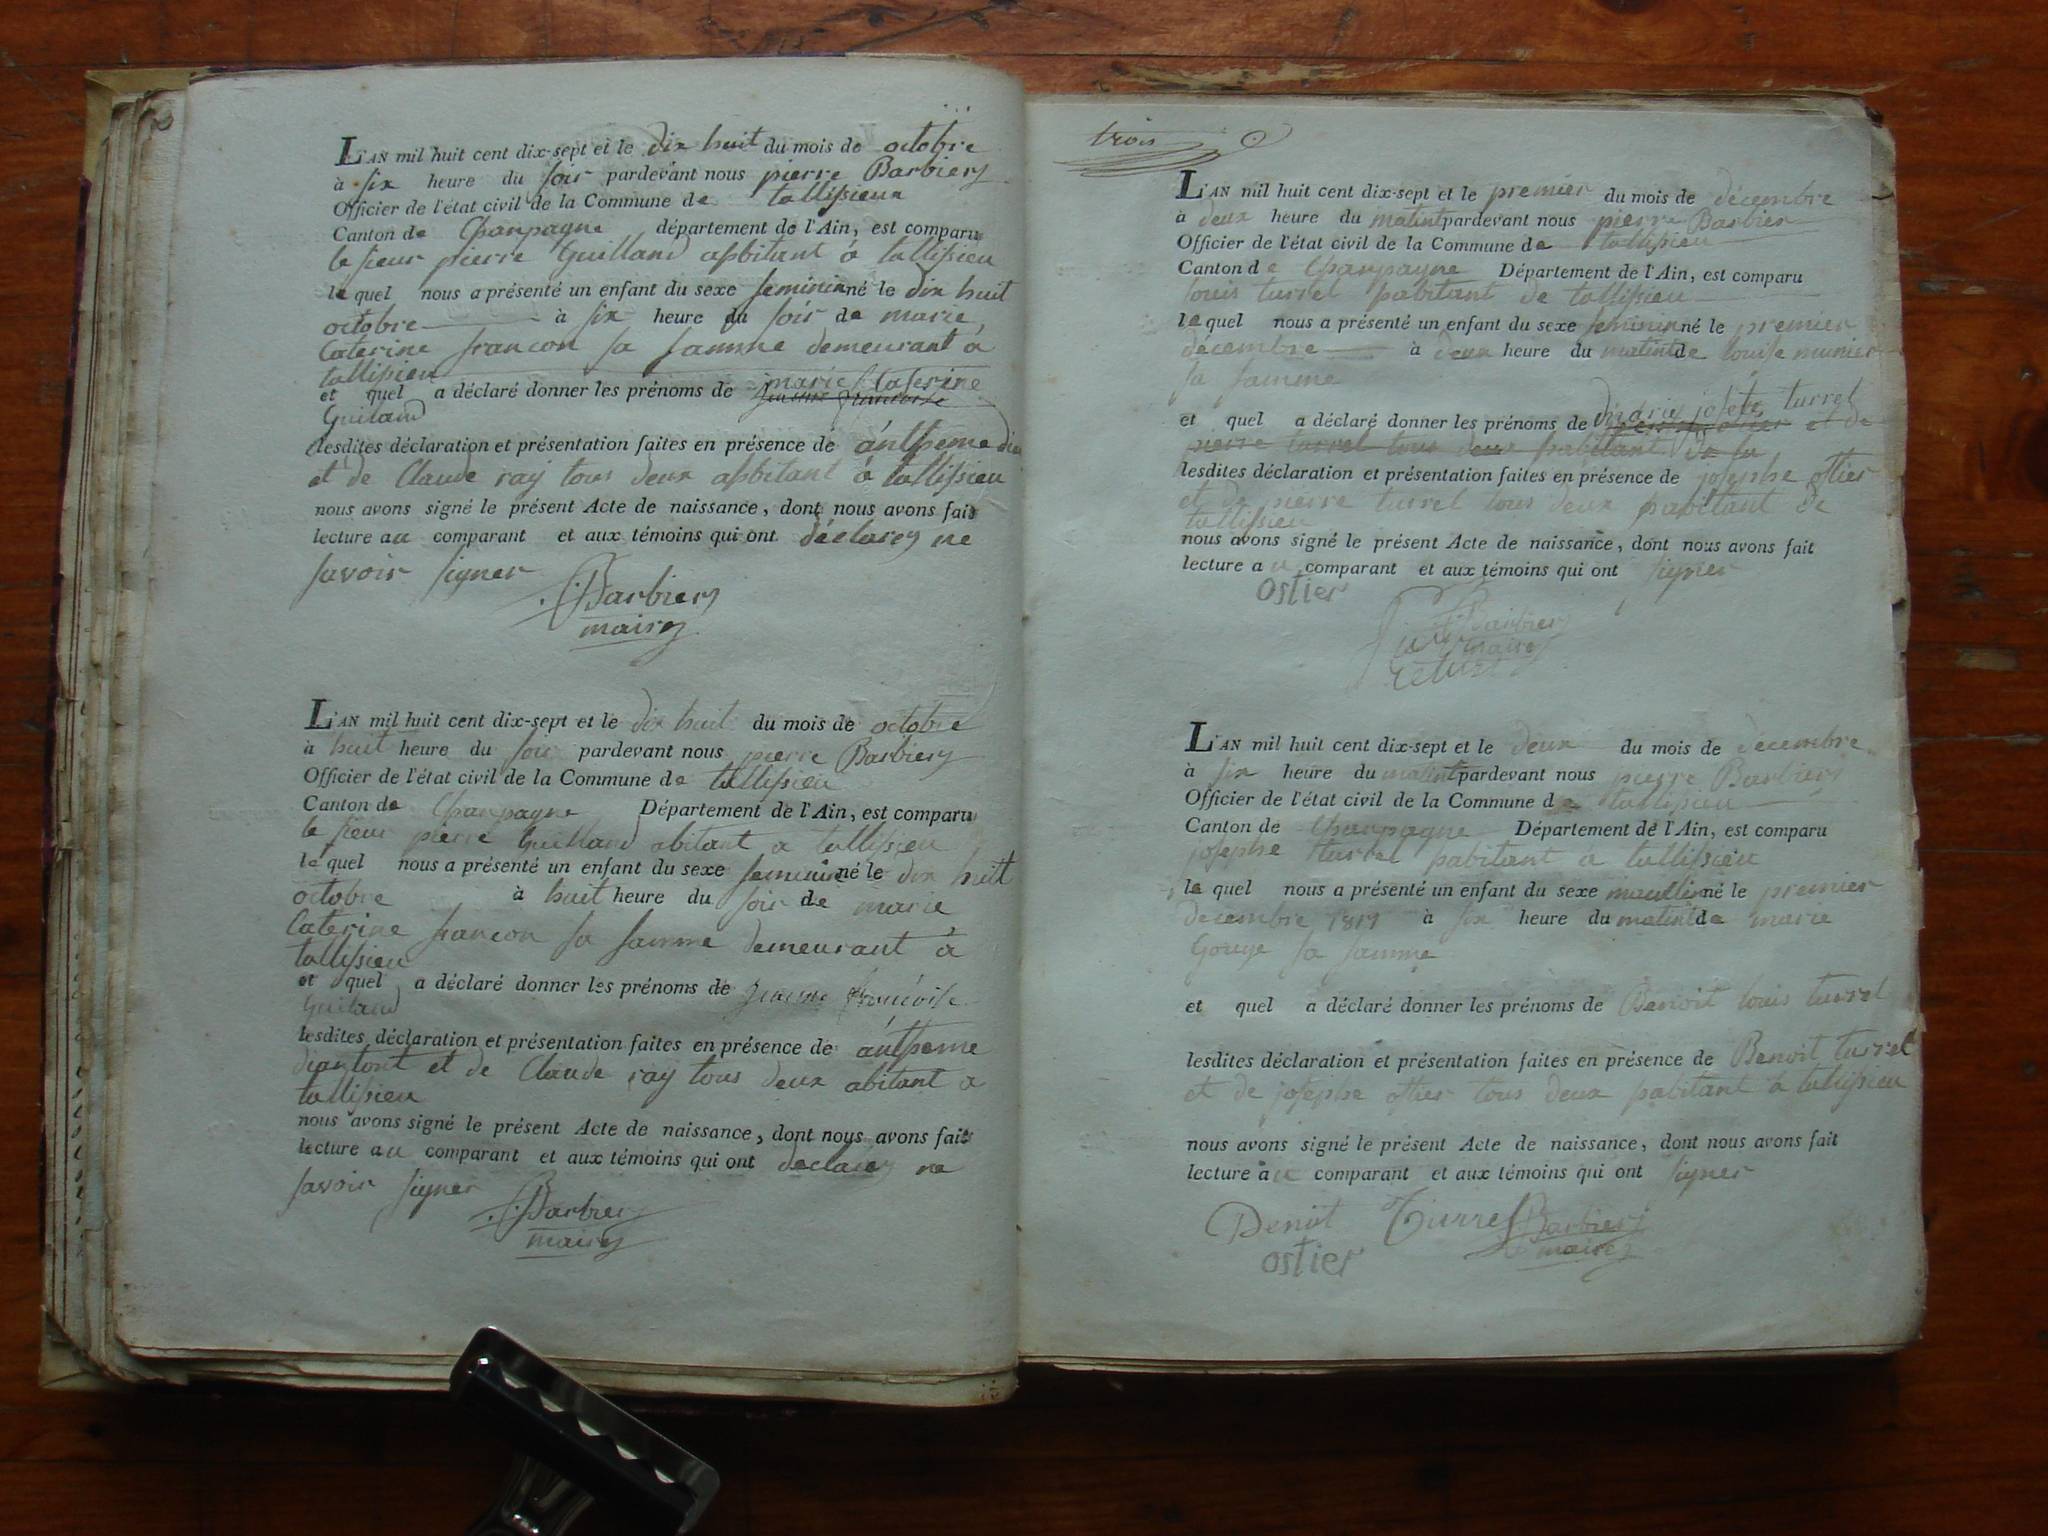 L'AN mil huit cent dix-sept et le dix huit du mois de octobre
à six heure du soir pardevant nous pierre Barbiery
Officier de l'état civil de la Commune de tallissieu
Canton de Chanpagne département de l'Ain, est comparu
le sieur pierre Guilland abitant à tallissieu
le quel nous a présenté un enfant du sexe feminin né le dix huit
octobre à six heure du soir de marie
Caterine francon sa famme demeurant à
tallissieu
et quel a déclaré donner les prénoms de marie Caterine
Guiland
lesdites déclaration et présentation faites en présence de ántheme
et de Claude ray tous deux abitant à tallissieu
nous avons signé le présent Acte de naissance, dont nous avons fait
lecture au comparant et aux témoins qui ont déclarey ne
savoir signer
Barbiery
mairey
L'AN mil huit cent dix-sept et le dix huit du mois de octobre
à huit heure du soir pardevant nous pierre Barbiery
Officier de l'état civil de la Commune de tallissieu
Canton de Chanpagne Département de l'Ain, est comparu
le sieur pierre Guilland abitant a tallissieu
le quel nous a présenté un enfant du sexe feminin né le dix huit
octobre à huit heure du soir de marie
Caterine francon sa famme demeurant à
tallissieu
et quel a déclaré donner les prénoms de francoise
Guiland
lesdites déclaration et présentation faites en présence de ántheme
et de Claude ray tous deux abitant a
tallissieu
nous avons signé le présent Acte de naissance, dont nous avons fait
lecture au comparant et aux témoins qui ont declarey ne
savoir signer
Barbiery
mairey
trois
L'AN mil huit cent dix-sept et le premier du mois de décembre
à deux heure du matint pardevant nous pierre Barbier
Officier de l'état civil de la Commune de tallissieu
Canton de Chanpagne Département de l'Ain, est comparu
louis turrel habitant de tallissieu
le quel nous a présenté un enfant du sexe feminin né le premier
décembre à deux heure du matint de louise munier
sa famme
et quel a déclaré donner les prénoms de marie josete turrel
pierre turrel tous deux habittant de
lesdites déclaration et présentation faites en présence de josephe ostier
et de pierre turrel tous deux habitant de
tallissieu
nous avons signé le présent Acte de naissance, dont nous avons fait
lecture au comparant et aux témoins qui ont signer
Ostier
Barbiery
mairey
L'AN mil huit cent dix-sept et le deux du mois de decembre
à six heure du matint pardevant nous pierre Barbiery
Officier de l'état civil de la Commune de tallissieu
Canton de Chanpagne Département de l'Ain, est comparu
josephe turrel habitant a tallissieu
le quel nous a présenté un enfant du sexe né le premier
decembre 1817 à six heure du matint de marie
Gouge sa famme
et quel a déclaré donner les prénoms de Benoit louis turrel
lesdites déclaration et présentation faites en présence de Benoit turrel
et de josephe ostier tous deux habitant à tallissieu
nous avons signé le présent Acte de naissance, dont nous avons fait
lecture au comparant et aux témoins qui ont signer
Benoit Turrel Barbiery
ostier mairey